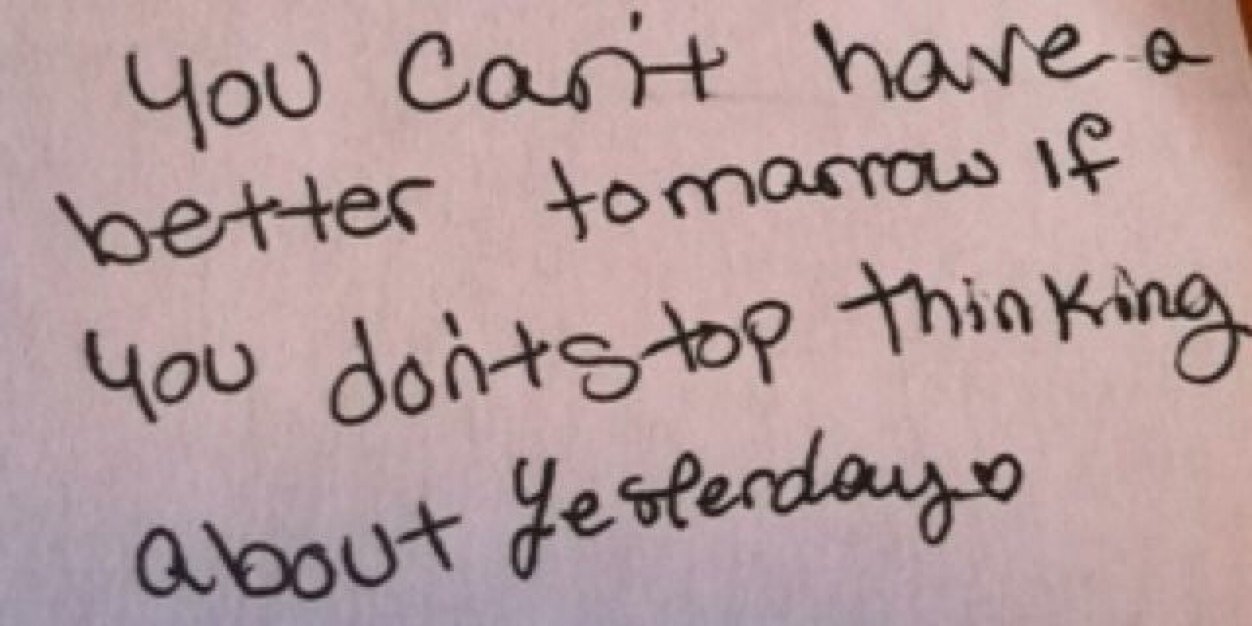 you can't have a
better tomarrow if
you don't stop thinking
about yesterday.